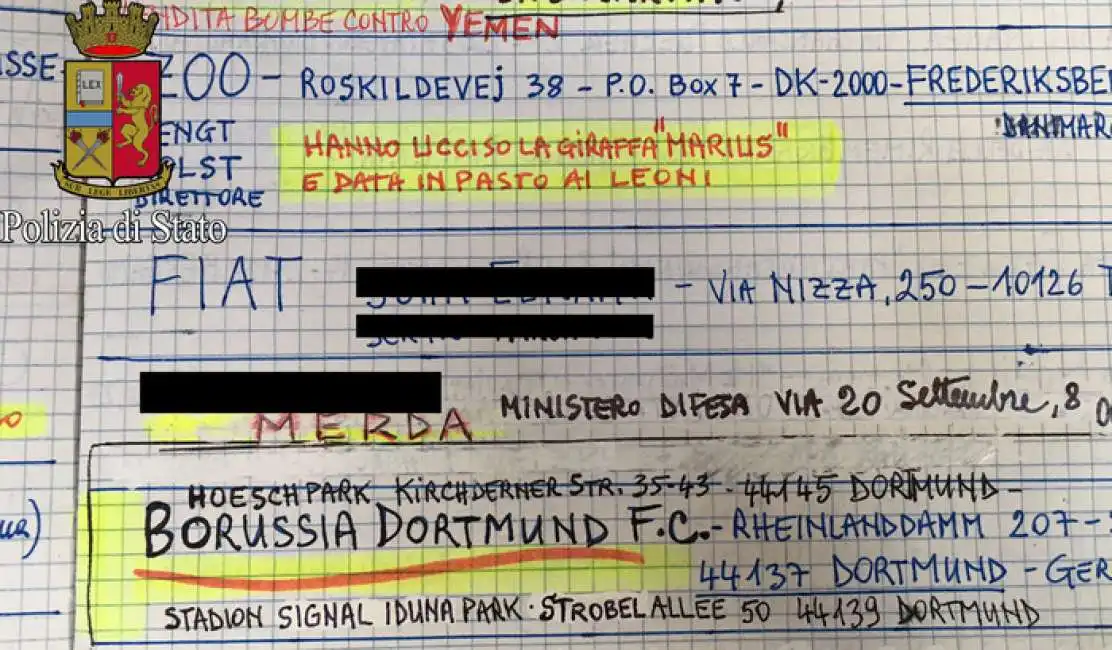 VENDITA BOMBE CONTRO YEMEN
ASSE
ZOO - ROSKILDEVEJ 38 - P.O. BOX 7 - DK-2000 - FREDERIKSBE
DANIMAR
LEX
ENGT
OLST
DIRETTORE
HANNO UCCISO LA GIRAFFA "MARIUS"
E DATA IN PASTO AI LEONI
SUB LEGE LIBERTAS
Polizia di Stato
FIAT - VIA NIZZA, 250 - 10126 T
MINISTERO DIFESA VIA 20 Settembre, 8
MERDA
HOESCHPARK KIRCHDERNER STR. 35-43 - 44145 DORTMUND -
BORUSSIA DORTMUND F.C. - RHEINLANDDAMM 207 -
44137 DORTMUND - GER
STADION SIGNAL IDUNA PARK · STROBELALLEE 50 44139 DORTMUND